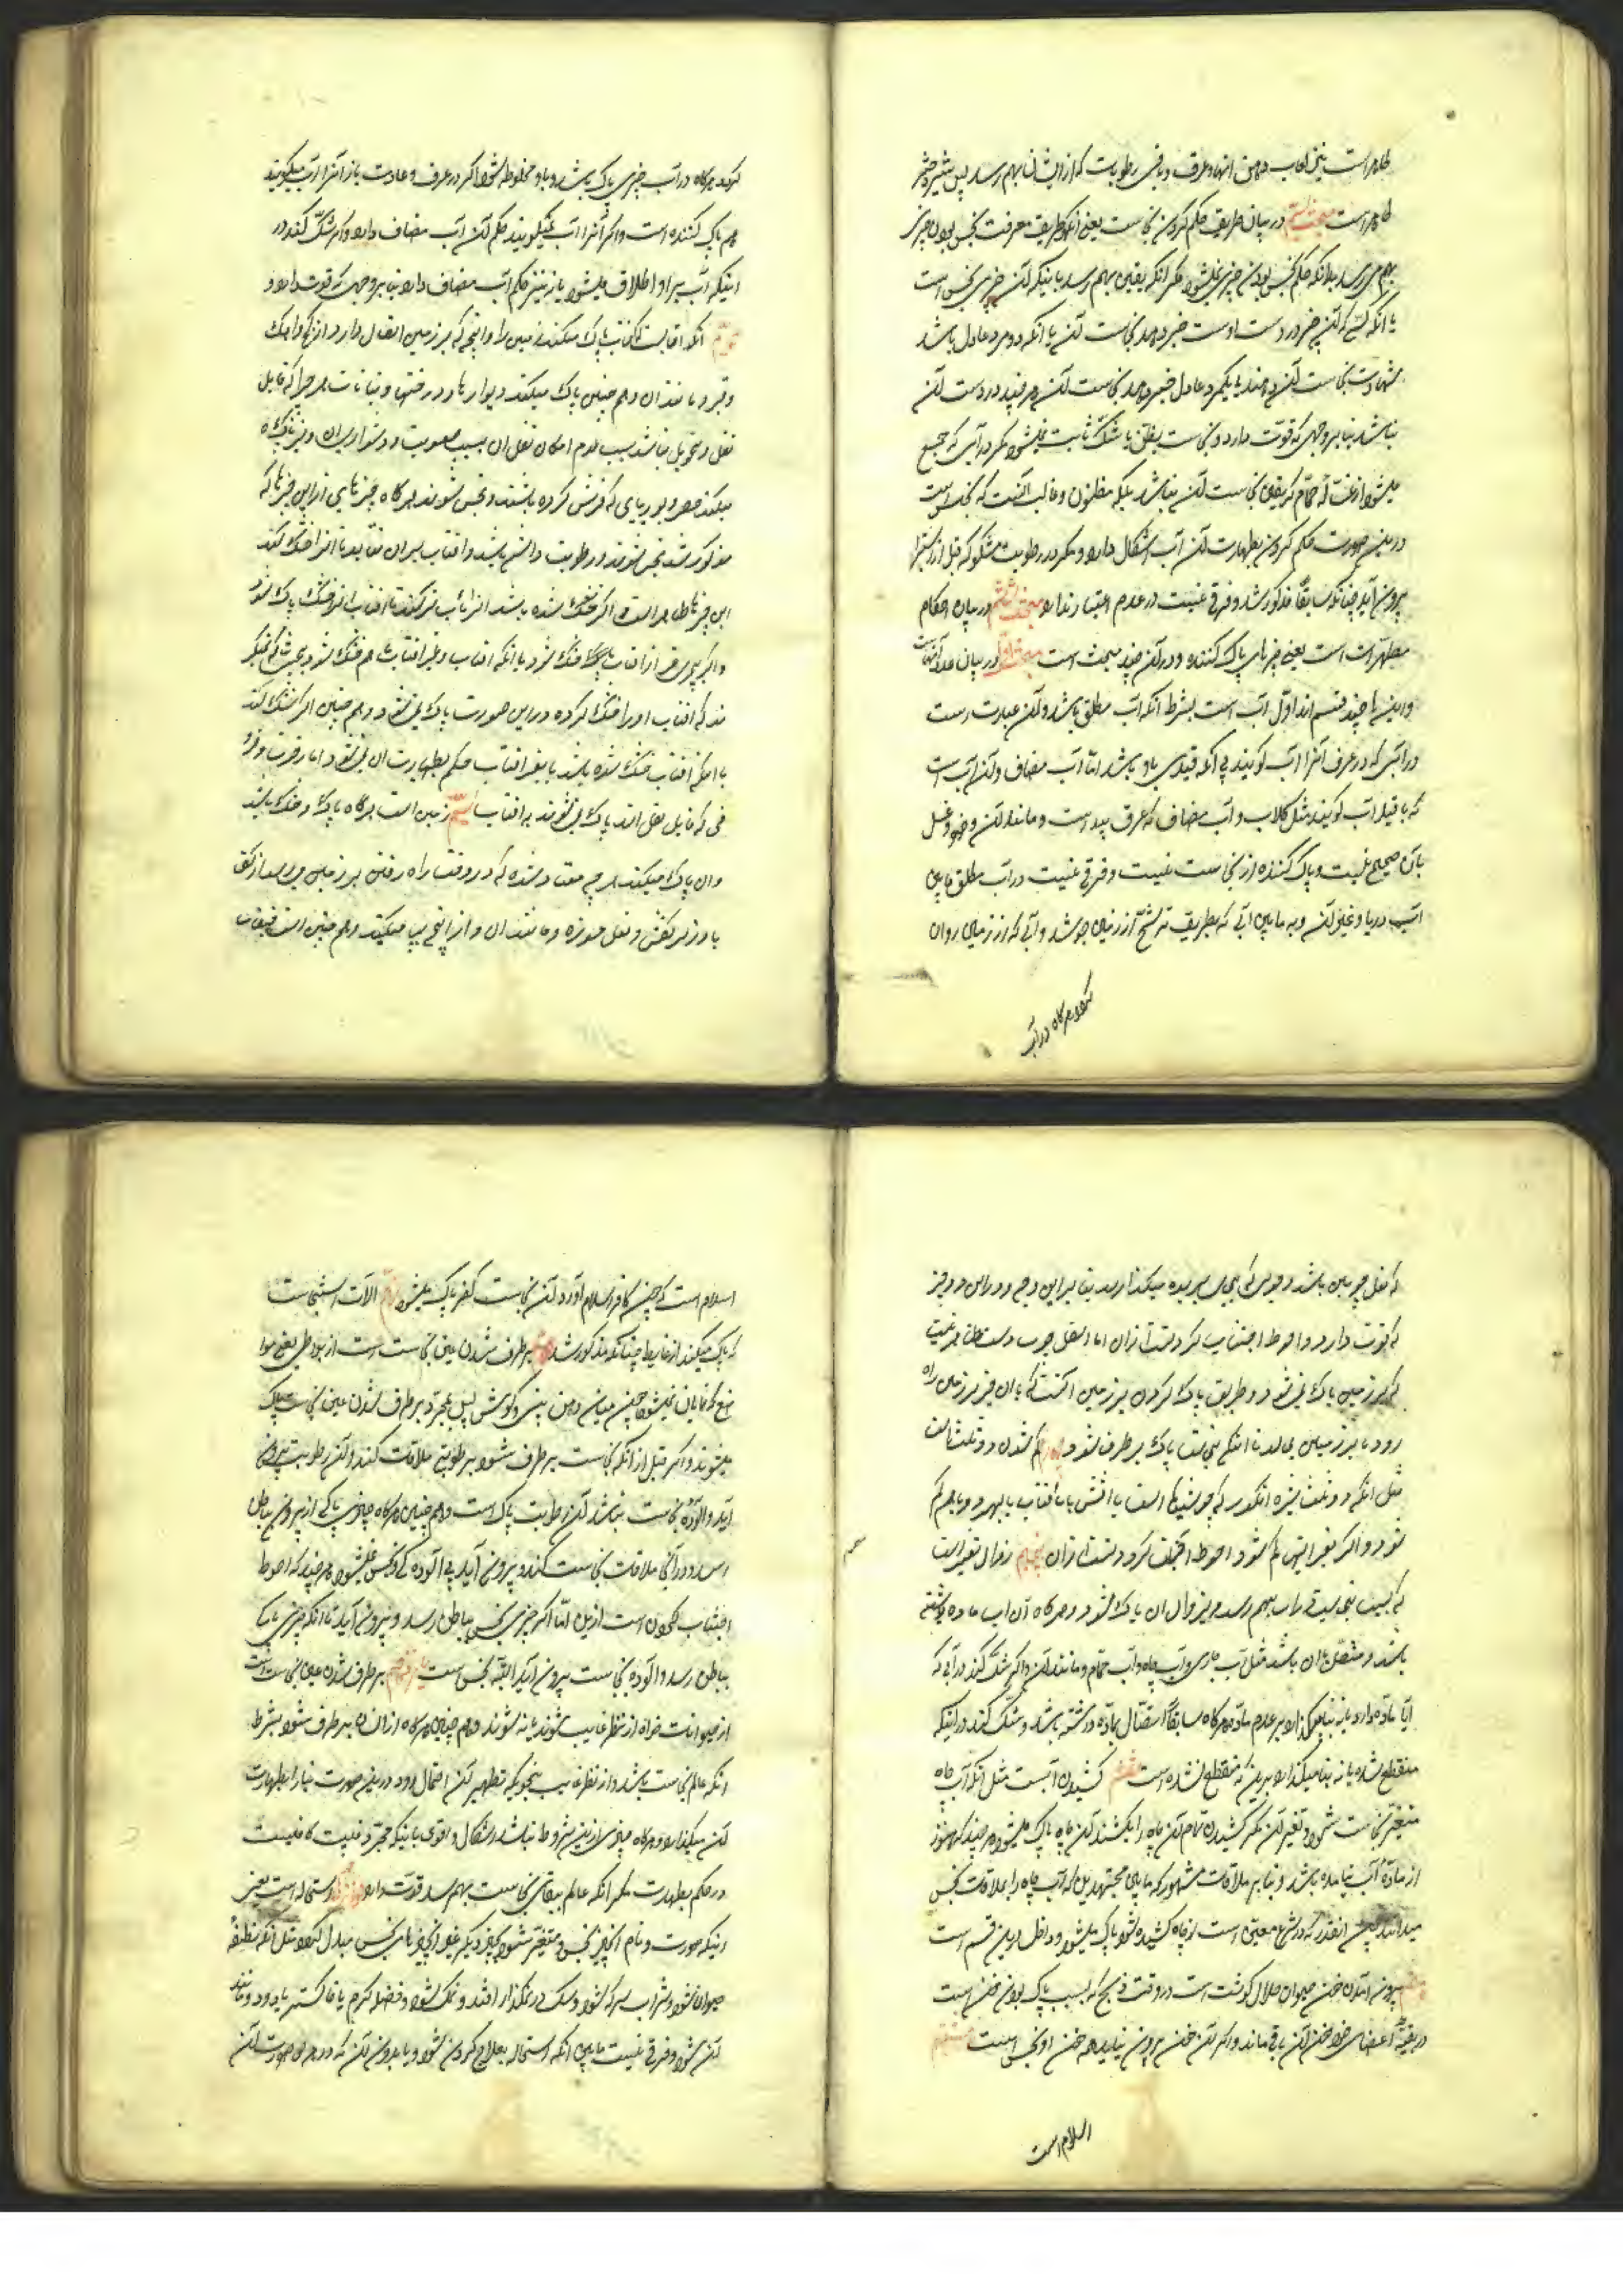 طاهر است یعنی لعاب دهن انها و عرق و باقی رطوبت که از ایشان بهم رسد پس شیر
طاهر است مبحث در بیان طریق حکم کردن نجاست یعنی آنکه طریق معرفت نجس بودن چیزی
بهم می رسد بدانکه حکم نجس بودن چیزی نمیشود مگر آنکه یقین بهم رسد باینکه آن چیز نجس است
یا آنکه کسی که آن چیز در دست اوست خبر دهد بنجاست آن یا آنکه دو مرد عادل باشد
شهادت بنجاست آن دهند یا یکمرد عادل خبر دهد بنجاست آن هر چند در دست آن
نباشد بنابر وجهی که قوت دارد و نجاست بظن یا شک ثابت نمیشود مگر در آبی که جمع
میشود از غساله حمام که یقین نجاست آن نباشد بلکه مظنون و غالب آنست که نجس است
درین صورت حکم کردن بطهارت آن آب اشکال دارد و مگر در رطوبت مشکوکه قبل از استبرا
بیرون آید چنانکه سابقا مذکور شد و فرقی نیست در عدم اعتبار مبحث در بیان احکام
مطهرات است یعنی چیزهای پاک کننده و در آن چند مبحث است مبحث اول در بیان عدد آنهاست
و این چند قسم اند اول آب است بشرط آنکه آب مطلق باشد و آن عبارت است
در آبی که در عرف آنرا آب گویند بی آنکه قیدی باو باشد اما آب مضاف و آن آب است
که با قید آب گویند مثل گلاب و آب مضاف که عرق بید است و مانند آن و وضو و غسل
بآن صحیح نیست و پاک کننده از نجاست نیست و فرقی نیست در آب مطلق مابین
آب دریا و غیر آن و به مابین آبی که بطریق ترشح از زمین جوشد و آبی که از زمین روان
هرگاه در آب
گردد هرگاه در آب چیزی پاک باشد و باو مخلوط شود اگر در عرف و عادت باز آنرا آب میگویند
هم پاک کننده است و اگر آنرا آب نمیگویند حکم آن آب مضاف دارد و اگر شک کند در
اینکه آب بر او اطلاق میشود یا نه نیز حکم آب مضاف دارد بنابر وجهی که قوت دارد و
دویم آنکه آفتابست که آفتاب پاک میکند زمین را و آنچه که بر زمین اتصال دارد از گچ و آهک
و قیر و مانند آن و هم چنین پاک میکند دیوارها و درختها و نباتات هر چیز را که قابل
نقل و تحویل نباشد بسبب عدم امکان نقل آن بسبب صعوبت و دشواری آن و نیز پاک
میکند حصیر و بوریای که فرش کرده باشند و نجس شوند هرگاه چیزهای از این چیزها که
مذکور شد نجس شوند و رطوبت داشته باشد و آفتاب بر آن بتابد تا آنرا خشک کند
این چیزها طاهر است و اگر خشک شده باشد آنرا بآب تر کنند تا آفتاب آنرا خشک پاک شود
و اگر چیزی غیر از آفتاب خشک شود یا آنکه آفتاب و غیر آفتاب باهم خشک شود بحیثیتی که نگویند
که آفتاب او را خشک کرده در این صورت پاک نمی شود و هم چنین اگر شک کند
با اینکه آفتاب خشک شده باشد یا بغیر آفتاب حکم بطهارت آن نمی شود اما رخت و فرو
فی که قابل نقل اند پاک نمی شوند به آفتاب سیم زمین است هرگاه پاک و خشک باشد
و آن پاک میکند هر چه معتاد شده که در وقت راه رفتن بر زمین می رسد از کف
پا و زیر کفش و نعل موزه و مانند آن و آنرا که پیا میکنند و هم چنین است
که نعل چوبین باشد و چوبی که پای بریده میگذارند بنابر این وجه و در این دو چیز
که قوت دارد و احوط اجتناب کردنست از آن اما اسفل چوب و
که بر زمین پاک نمی شود و طریق پاک کردن بر زمین آنست که با آن چیز بر زمین راه
رود یا بر زمین بمالد تا آنکه نجاست پاک برطرف شود چهارم کم شدن دو ثلث است
مثل آنکه دو ثلث شیره انگور که جوشیده است با آتش یا بآفتاب یا بهر دو باهم کم
شود و اگر بغیر اینها کم شود احوط اجتناب کردنست از آن پنجم زوال تغییر است
که بسبب نجاست در آب بهم رسد و بزوال آن پاک شود در هرگاه آن آب ماده داشته
باشد و متصل بآن باشد مثل آب جاری و آب چاه و آب حمام و مانند آن و اگر شک کند در آبی که
آیا ماده دارد یا نه بنا میگذارد بر عدم ماده و هرگاه سابقا اتصال بماده داشته باشد و شک کند در اینکه
منقطع شده یا نه بنا میگذارد برین که منقطع نشده است ششم کشیدن آبست مثل آنکه آب چاه
متغیر بنجاست شود و تغیر آن بکشیدن تمام آن چاه را بکشند آن چاه پاک میشود هر چند که هنوز
از ماده آب نیامده باشد و بنابر ملاقات مشهور که مابین مجتهدین که آب چاه را بملاقات نجس
میدانند پس آنقدر که در شرع معین است از چاه کشیده شود پاک میشود و داخل درین قسم است
هفتم بیرون آمدن خون حیوان حلال گوشت است در وقت ذبح که بسبب پاک بودن خون است
در بقیه اعضای خود خون آن باقی ماند و اگر آن خون بیرون نیاید همه خون او نجس است هشتم
اسلام است
اسلام است که چون کافر اسلام آورد آن نجاست کفر پاک میشود نهم آلات استنجاست
که پاک میکند از غایط چنانکه مذکور شد دهم برطرف شدن عین نجاست است از بواطن یعنی موا
ضع که نمایان نمیشود چون میان دهن و بینی و گوش پس بمجرد برطرف شدن عین نجاست پاک
میشوند و اگر قبل از آنکه نجاست برطرف شود برطوبتی ملاقات کند و آن رطوبت بیرون
آید و آلوده بنجاست نباشد آن رطوبت پاک است و هم چنین هرگاه چیزی پاکی از بیرون بباطن
رسد و در آنجا ملاقات نجاست کند و بیرون آید بی آلودگی نجس نمیشود هر چند که احوط
اجتناب کردن است ازین اما اگر چیزی نجس بباطن رسد و بیرون آید یا آنکه چیزی پاک
بباطن رسد و آلوده بنجاست بیرون آید البته نجس است یازدهم برطرف شدن عین نجاست است
از حیوانات خواه از نظر غایب شوند یا نه شوند و هم چنین هرگاه از انسان برطرف شود بشرط
آنکه عالم بنجاست باشد و از نظر غایب بنحوی که تطهیر آن احتمال رود درین صورت بنا را بطهارت
آن میگذارد و هرگاه چیزی ازین شروط نباشد اشکال و اقوی باینکه مجرد غیبت کافیست
در حکم بطهارت مگر آنکه عالم ببقای نجاست بهم رسد قوت دارد دوازدهم استحاله است یعنی
اینکه صورت و نام آن چیز نجس متغیر شود بچیز دیگر غیر آن چیزهای نجس مبدل گردد مثل آنکه نطفه
حیوان شود و شراب سرکه شود و سگ در نمکزار افتد و نمک شود و فضله کرم یا خاکستر یا دود و مانند
آن شود و فرقی نیست مابین آنکه استحاله بعلاج کردن شود و یا بدون آن که در هر دو صورت آن